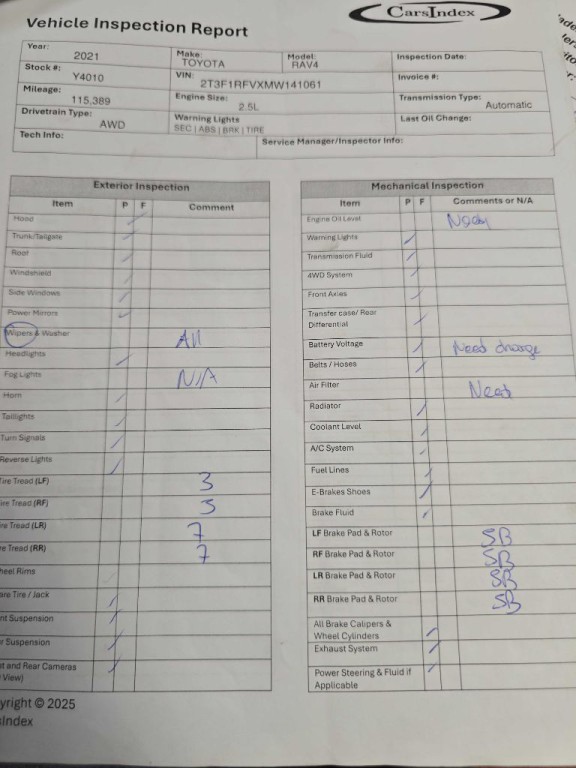 CarsIndex
Vehicle Inspection Report
Year: 2021 Make: TOYOTA Model: RAV4 Inspection Date:
Stock #: Y4010 VIN: 2T3F1RFVXMW141061 Invoice #:
Mileage: 115,389 Engine Size: 2.5L Transmission Type: Automatic
Drivetrain Type: AWD Warning Lights SEC | ABS | BRK | TIRE Last Oil Change:
Tech Info: Service Manager/Inspector Info:
Exterior Inspection
Item P F Comment
Hood
Trunk/Tailgate
Roof
Windshield
Side Windows
Power Mirrors
Wipers & Washer All
Headlights
Fog Lights N/A
Horn
Taillights
Turn Signals
Reverse Lights
Tire Tread (LF) 3
ire Tread (RF) 3
re Tread (LR) 7
e Tread (RR) 7
heel Rims
are Tire / Jack
nt Suspension
r Suspension
t and Rear Cameras
View)
Mechanical Inspection
Item P F Comments or N/A
Engine Oil Level
Warning Lights
Transmission Fluid
4WD System
Front Axles
Transfer case/ Rear
Differential
Battery Voltage Need
Belts / Hoses
Air Filter Need
Radiator
Coolant Level
A/C System
Fuel Lines
E-Brakes Shoes
Brake Fluid
LF Brake Pad & Rotor SB
RF Brake Pad & Rotor SB
LR Brake Pad & Rotor SB
RR Brake Pad & Rotor SB
All Brake Calipers &
Wheel Cylinders
Exhaust System
Power Steering & Fluid if
Applicable
yright © 2025
sIndex